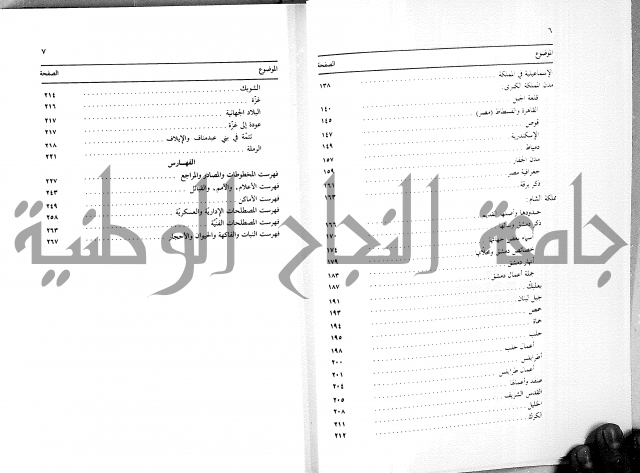 ٦
الموضوع الصفحة
الإسماعيلية في المملكة ١٣٨
مدن المملكة الكبرى:
قلعة الجبل ١٤٠
القاهرة والفسطاط (مصر) ١٤٥
قوص ١٤٧
الإسكندرية ١٤٩
دمياط ١٥٧
مدن الحفار ١٥٩
جغرافية مصر ١٦١
ذكر برقة ١٦٣
مملكة الشام:
حدودها
ذكر دمشق ١٦٦
أسماء بعض جهاتها
خصائص دمشق ١٧٤
أنهار دمشق ١٧٩
جملة أعمال دمشق ١٨٣
بعلبك ١٨٧
جبل لبنان ١٩١
حمص ١٩٣
حماة ١٩٤
حلب ١٩٥
أعمال حلب ١٩٨
أطرابلس ٢٠٠
أعمال طرابلس ٢٠١
صفد وأعمالها ٢٠٤
القدس الشريف ٢٠٥
الخليل ٢٠٨
الكرك ٢١١
٢١٢
٧
الموضوع الصفحة
الشوبك ٢١٤
غزة ٢١٦
البلاد الجهانية ٢١٧
عودة إلى غزة ٢١٧
تتمّة في بني عبدمناف والإيلاف ٢١٨
الرملة ٢٢١
الفهارس
فهرست المخطوطات والمصادر والمراجع ٢٢٧
فهرست الأعلام، والأمم، والقبائل ٢٤٣
فهرست الأماكن ٢٤٩
فهرست المصطلحات الإدارية والعسكرية ٢٥٨
فهرست المصطلحات الفنّية ٢٦٣
فهرست النبات والفاكهة والحيوان والأحجار ٢٦٧
جامعة النجاح الوطنية